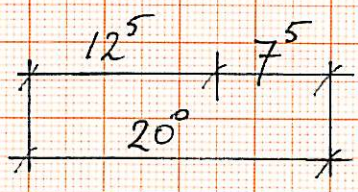 12⁵ 7⁵
20⁰